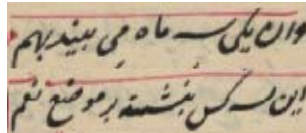 وان یکی سه ماه می بیند بهم
این سه کس بنشسته بر موضع نعم